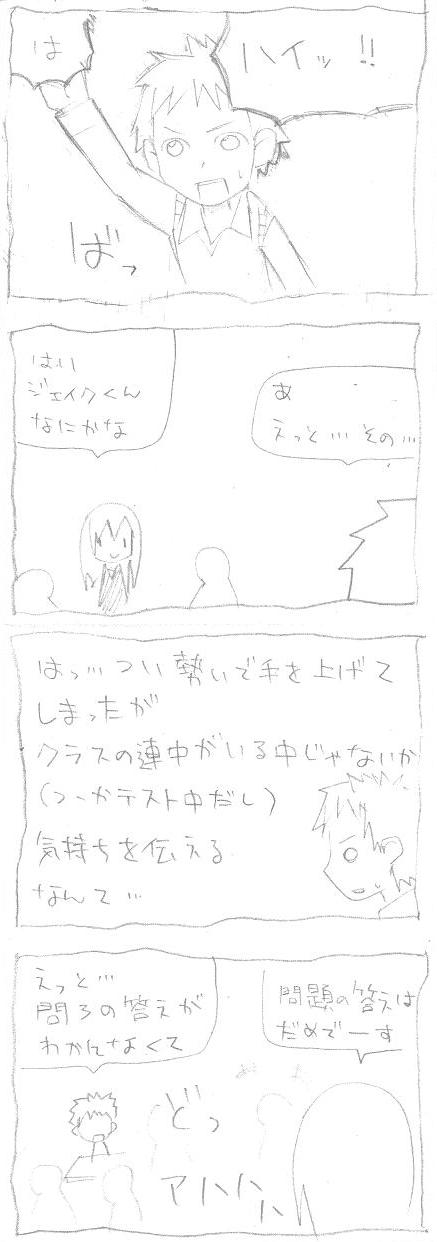 ハイッ!!
は
ばっ
あ
えっと…その…
はい
ジェイクくん
なにかな
はっ…つい勢いで手を上げて
しまったが
クラスの連中がいる中じゃないか
(つーかテスト中だし)
気持ちを伝える
なんて…
えっと…
問3の答えが
わかんなくて
問題の答えは
だめでーす
どっ
アハハハ